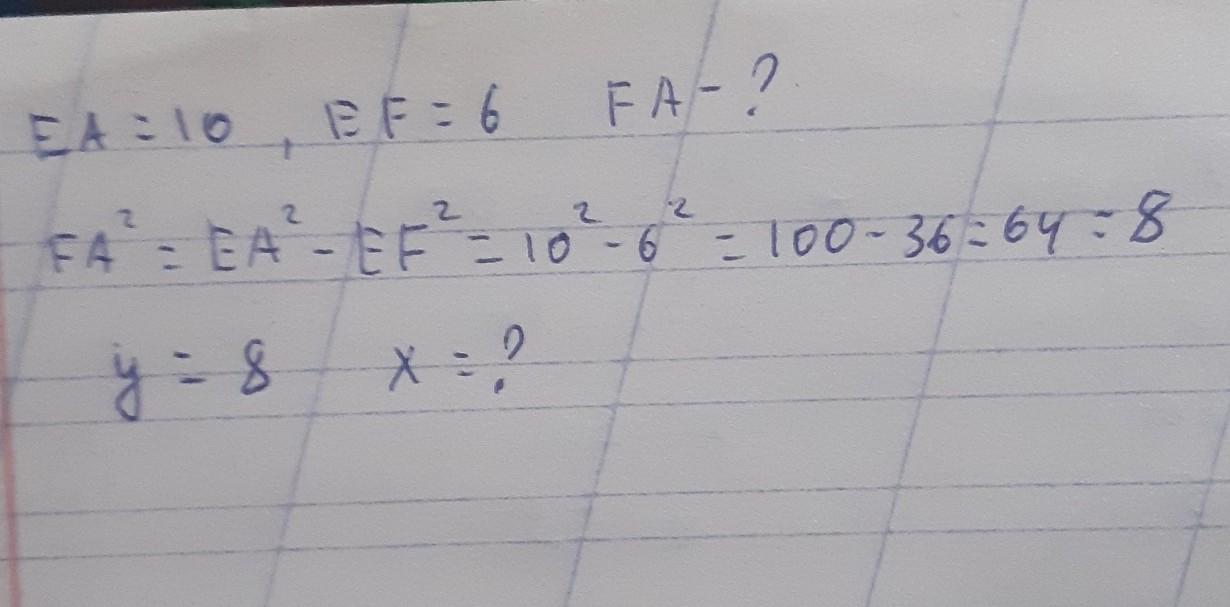 EA = 10, EF = 6 FA - ?
FA² = EA² - EF² = 10² - 6² = 100 - 36 = 64 = 8
y = 8 x = ?